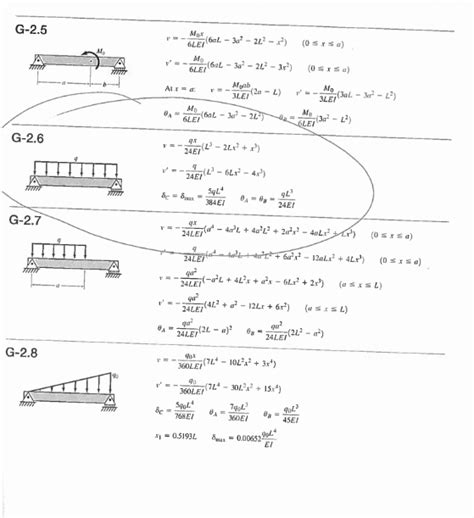 G-2.5
M₀
a
b
v = − M₀x/6LEI (6aL − 3a² − 2L² − x²) (0 ≤ x ≤ a)
v′ = − M₀/6LEI (6aL − 3a² − 2L² − 3x²) (0 ≤ x ≤ a)
At x = a: v = − M₀ab/3LEI (2a − L) v′ = − M₀/3LEI (3aL − 3a² − L²)
θA = M₀/6LEI (6aL − 3a² − 2L²) θB = M₀/6LEI (3a² − L²)
G-2.6
q
v = − qx/24EI (L³ − 2Lx² + x³)
v′ = − q/24EI (L³ − 6Lx² − 4x³)
δC = δmax = 5qL⁴/384EI θA = θB = qL³/24EI
G-2.7
q
a
v = − qx/24LEI (a⁴ − 4a³L + 4a²L² + 2a²x² − 4aLx² + Lx³) (0 ≤ x ≤ a)
v′ = − q/24LEI (a⁴ − 4a³L + 4a²L² + 6a²x² − 12aLx² + 4Lx³) (0 ≤ x ≤ a)
v = − qa²/24LEI (−a²L + 4L²x + a²x − 6Lx² + 2x³) (a ≤ x ≤ L)
v′ = − qa²/24LEI (4L² + a² − 12Lx + 6x²) (a ≤ x ≤ L)
θA = qa²/24LEI (2L − a)² θB = qa²/24LEI (2L² − a²)
G-2.8
q₀
v = − q₀x/360LEI (7L⁴ − 10L²x² + 3x⁴)
v′ = − q₀/360LEI (7L⁴ − 30L²x² + 15x⁴)
δC = 5q₀L⁴/768EI θA = 7q₀L³/360EI θB = q₀L³/45EI
x₁ = 0.5193L δmax = 0.00652 q₀L⁴/EI